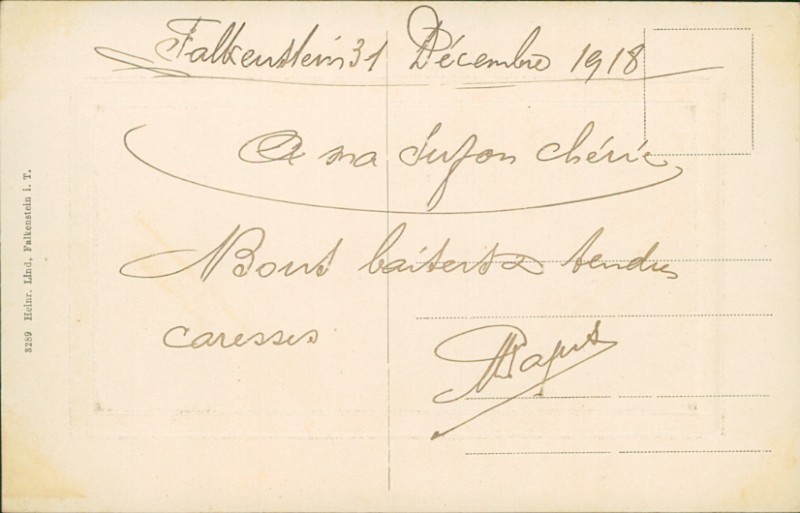 Falkenstein 31 Décembre 1918
A ma Suzon chérie
Bons baisers & tendres
caresses
3289 Heinr. Lind, Falkenstein i. T.